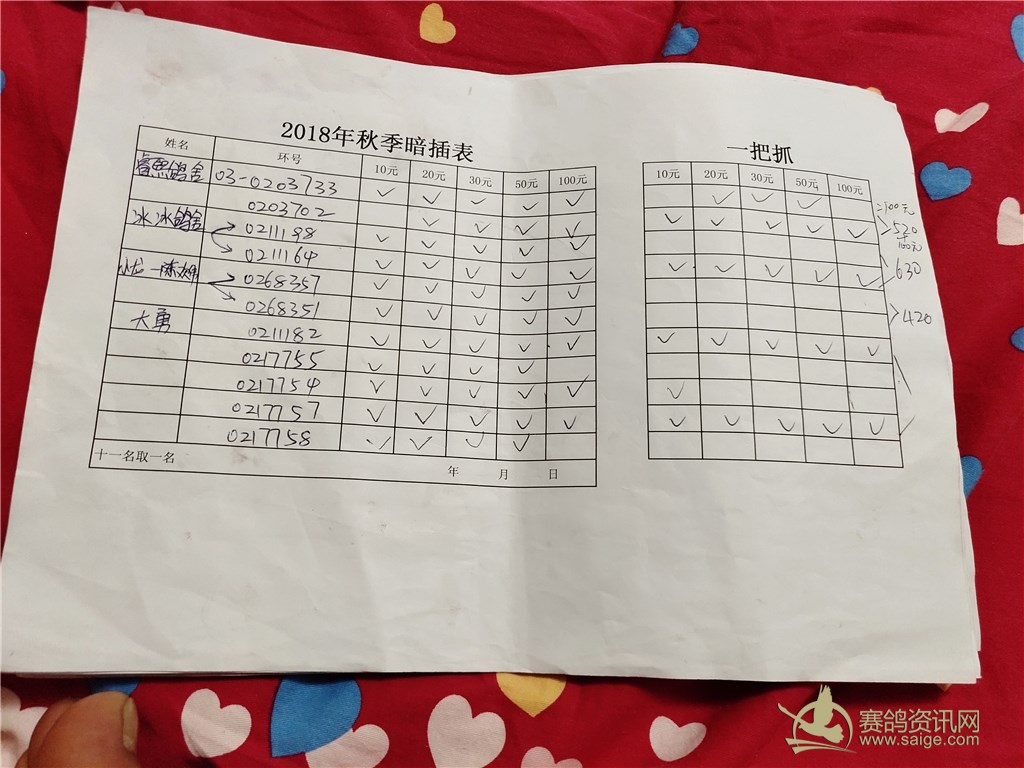 2018年秋季暗插表
一把抓
姓名 环号 10元 20元 30元 50元 100元
10元 20元 30元 50元 100元
睿熙鸽舍 03-0203733 ✓ ✓ ✓ ✓ ✓
0203702
冰冰鸽舍 0211198
0211164
0268357
0268351
大勇 0211182
0217755
0217754
0217757
0217758
=100元
520
100元
630
420
十一名取一名 年 月 日
赛鸽资讯网
www.saige.com